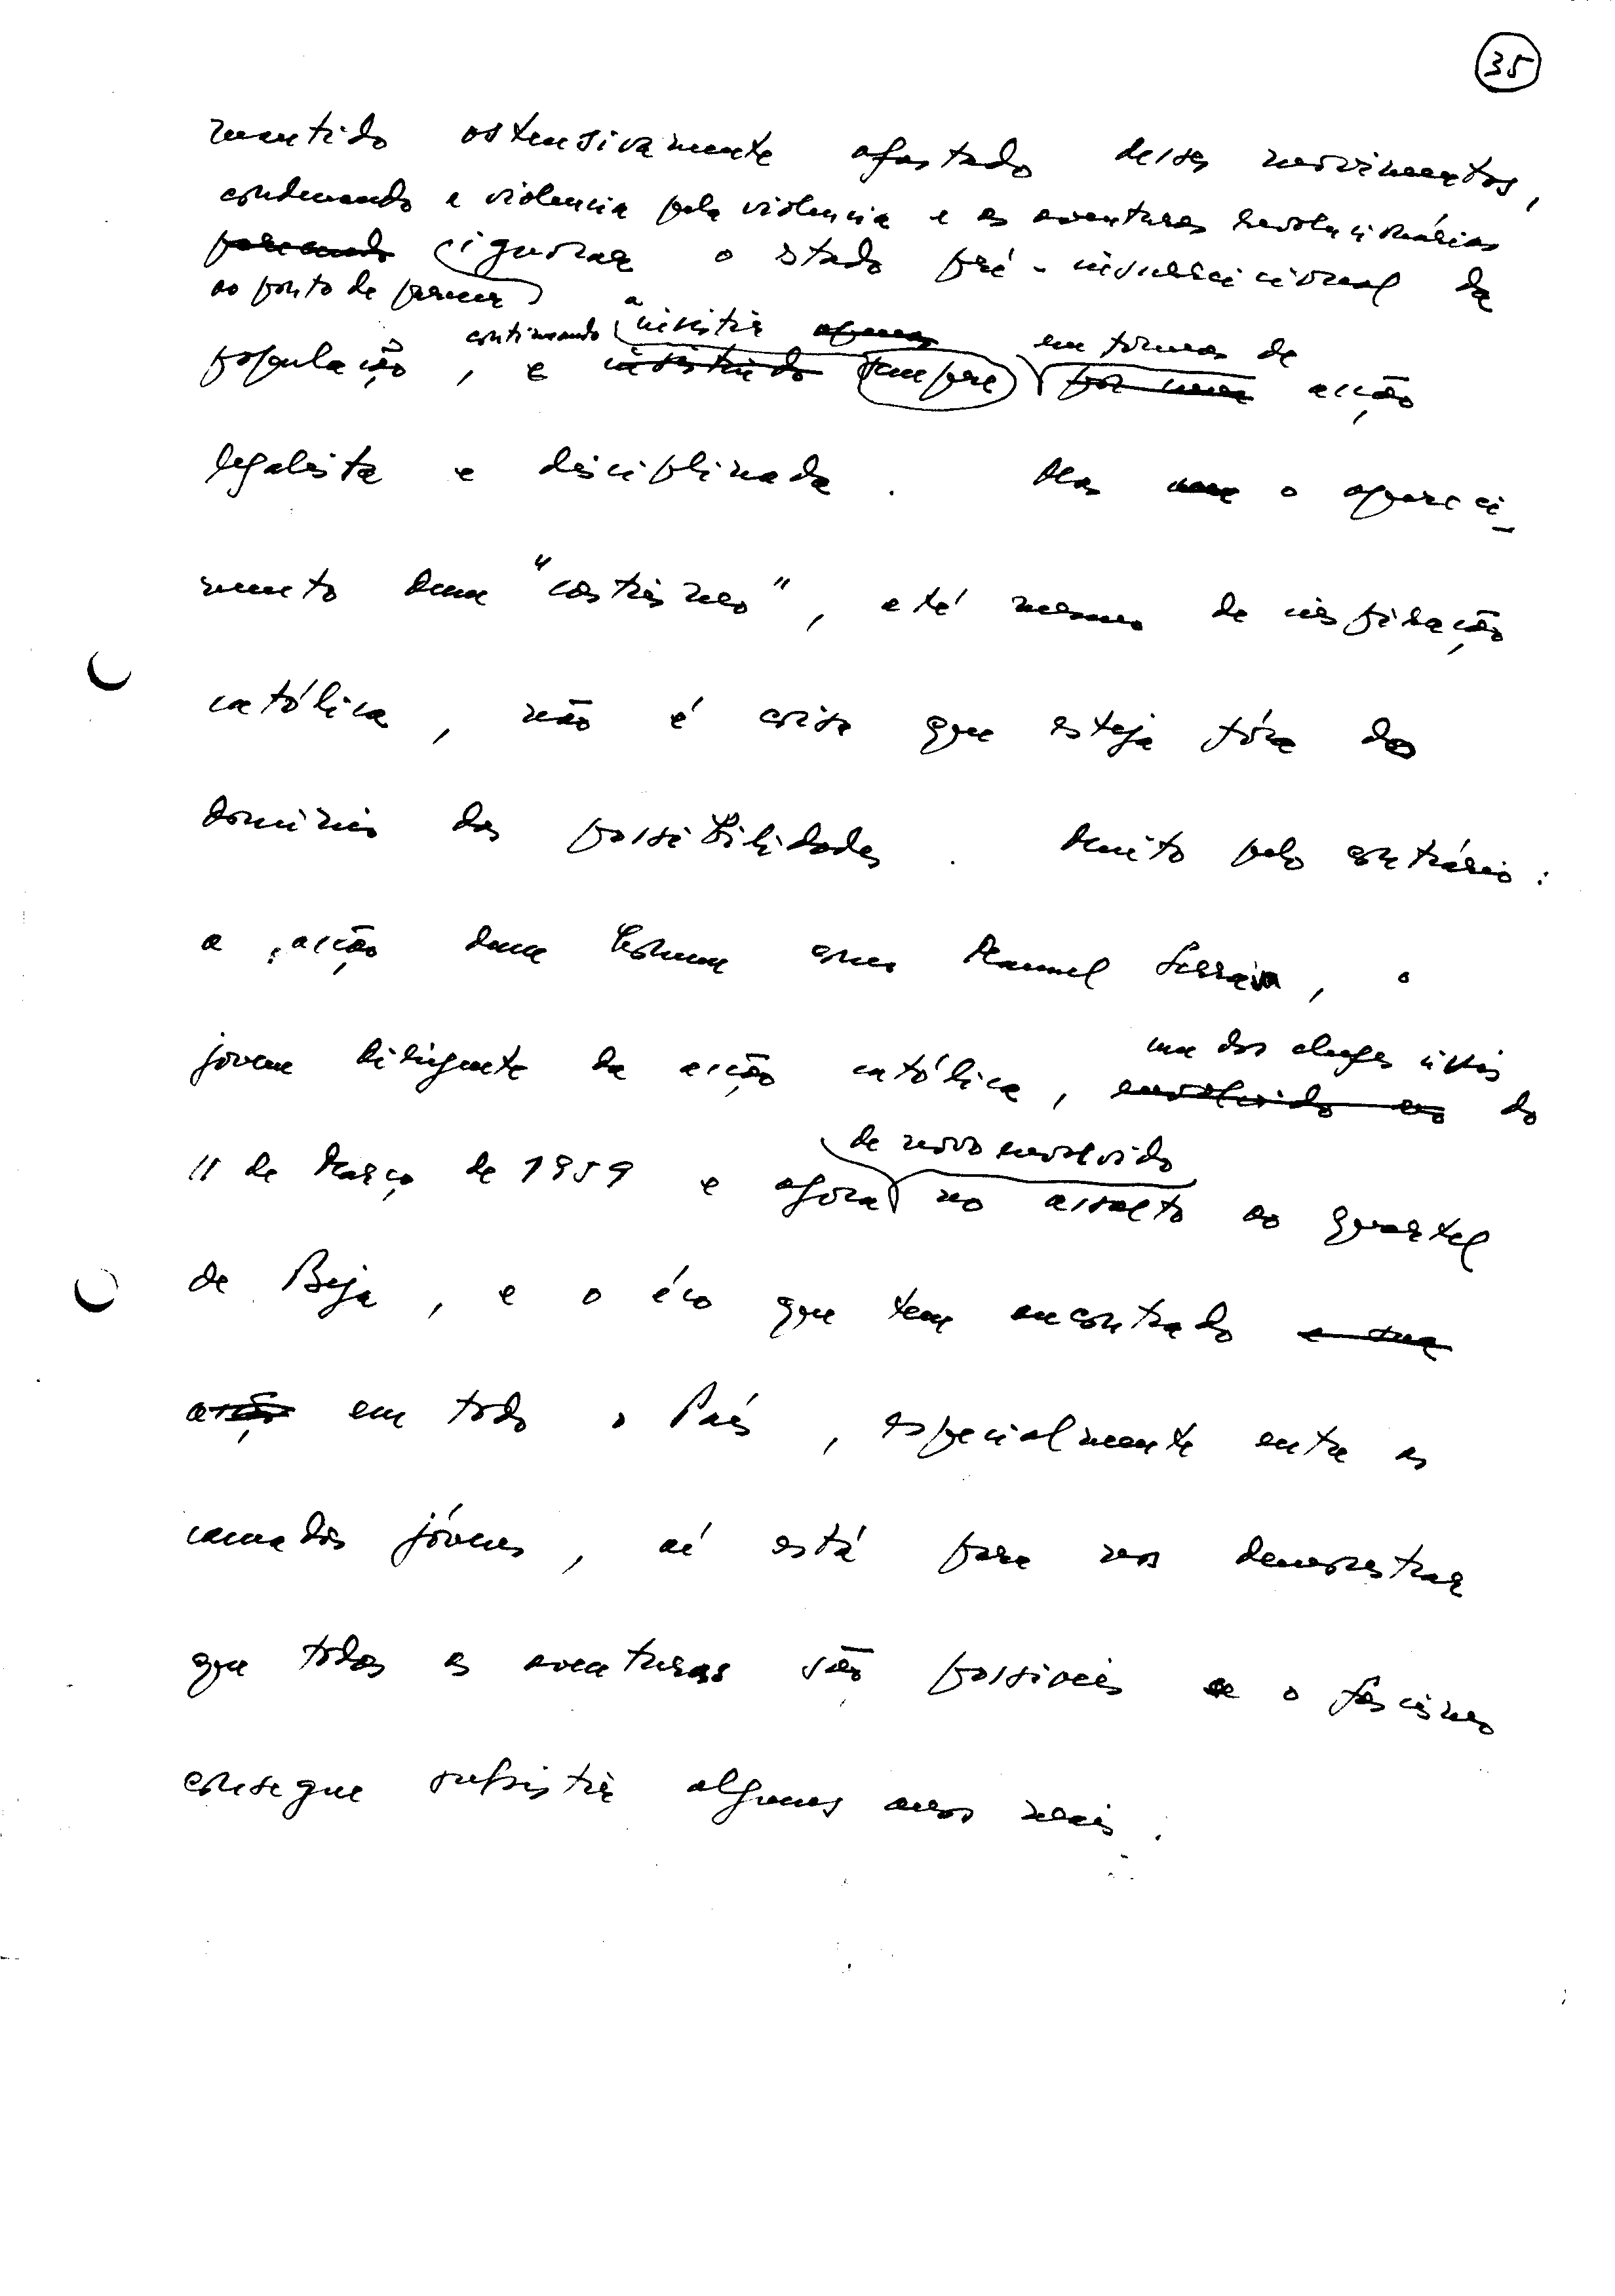 35
mantido ostensivamente afastado desses movimentos,
condenando a violencia pela violencia e as aventuras revolucionárias
parecendo ignorar o estado pré-insurreicional da
ao ponto de parecer
continuando a insistir apenas em formas de
população, e insistindo sempre por uma acção
legalista e disciplinada. Mas o apareci-
mento duma "castrismo", até mesmo de inspiração
católica, não é coisa que esteja fóra do
dominio das possibilidades. Muito pelo contrário:
a acção dum homem como Manuel Serra, o
um dos chefes civis
jovem dirigente da acção católica, envolvido no do
de novo envolvido
11 de Março de 1959 e agora no assalto ao quartel
de Beja, e o éco que tem encontrado a sua
acção em todo o País, especialmente entre as
camadas jóvens, aí está para nos demonstrar
que todas as aventuras são possiveis se o fascismo
consegue subsistir alguns anos mais.